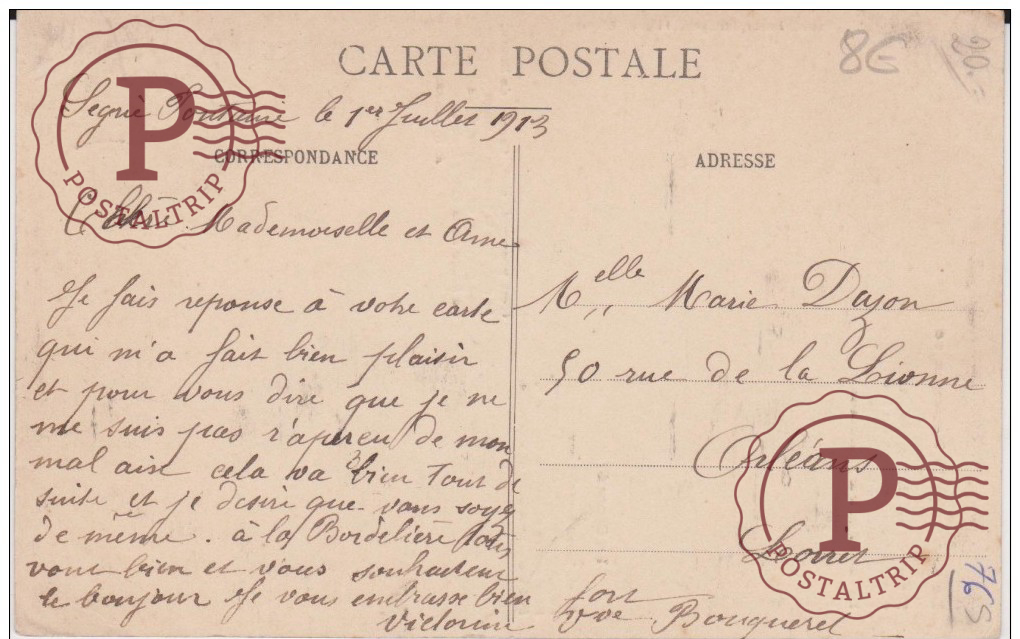 CARTE POSTALE
le 1er Juillet 1913
CORRESPONDANCE
Mademoiselle et Amie
Je fais reponse à votre carte
qui m'a fait bien plaisir
et pour vous dire que je ne
me suis pas r'aperçu de mon
mal aise cela va bien tout de
suite et je desire que vous soyez
de même. à la Bordelière tous
vont bien et vous souhaitent
le bonjour Je vous embrasse bien
fort
Victorine Vve Bouqueret
ADRESSE
Melle Marie Dazon
50 rue de la Lionne
Orléans
Loiret
8E
20.
76S
P
POSTALTRIP
P
POSTALTRIP